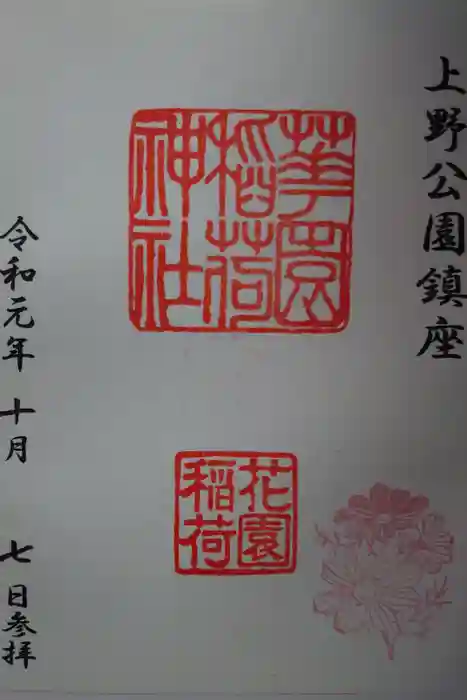 上野公園鎮座
華園稲荷神社
花園稲荷
令和元年 十月 七日参拝